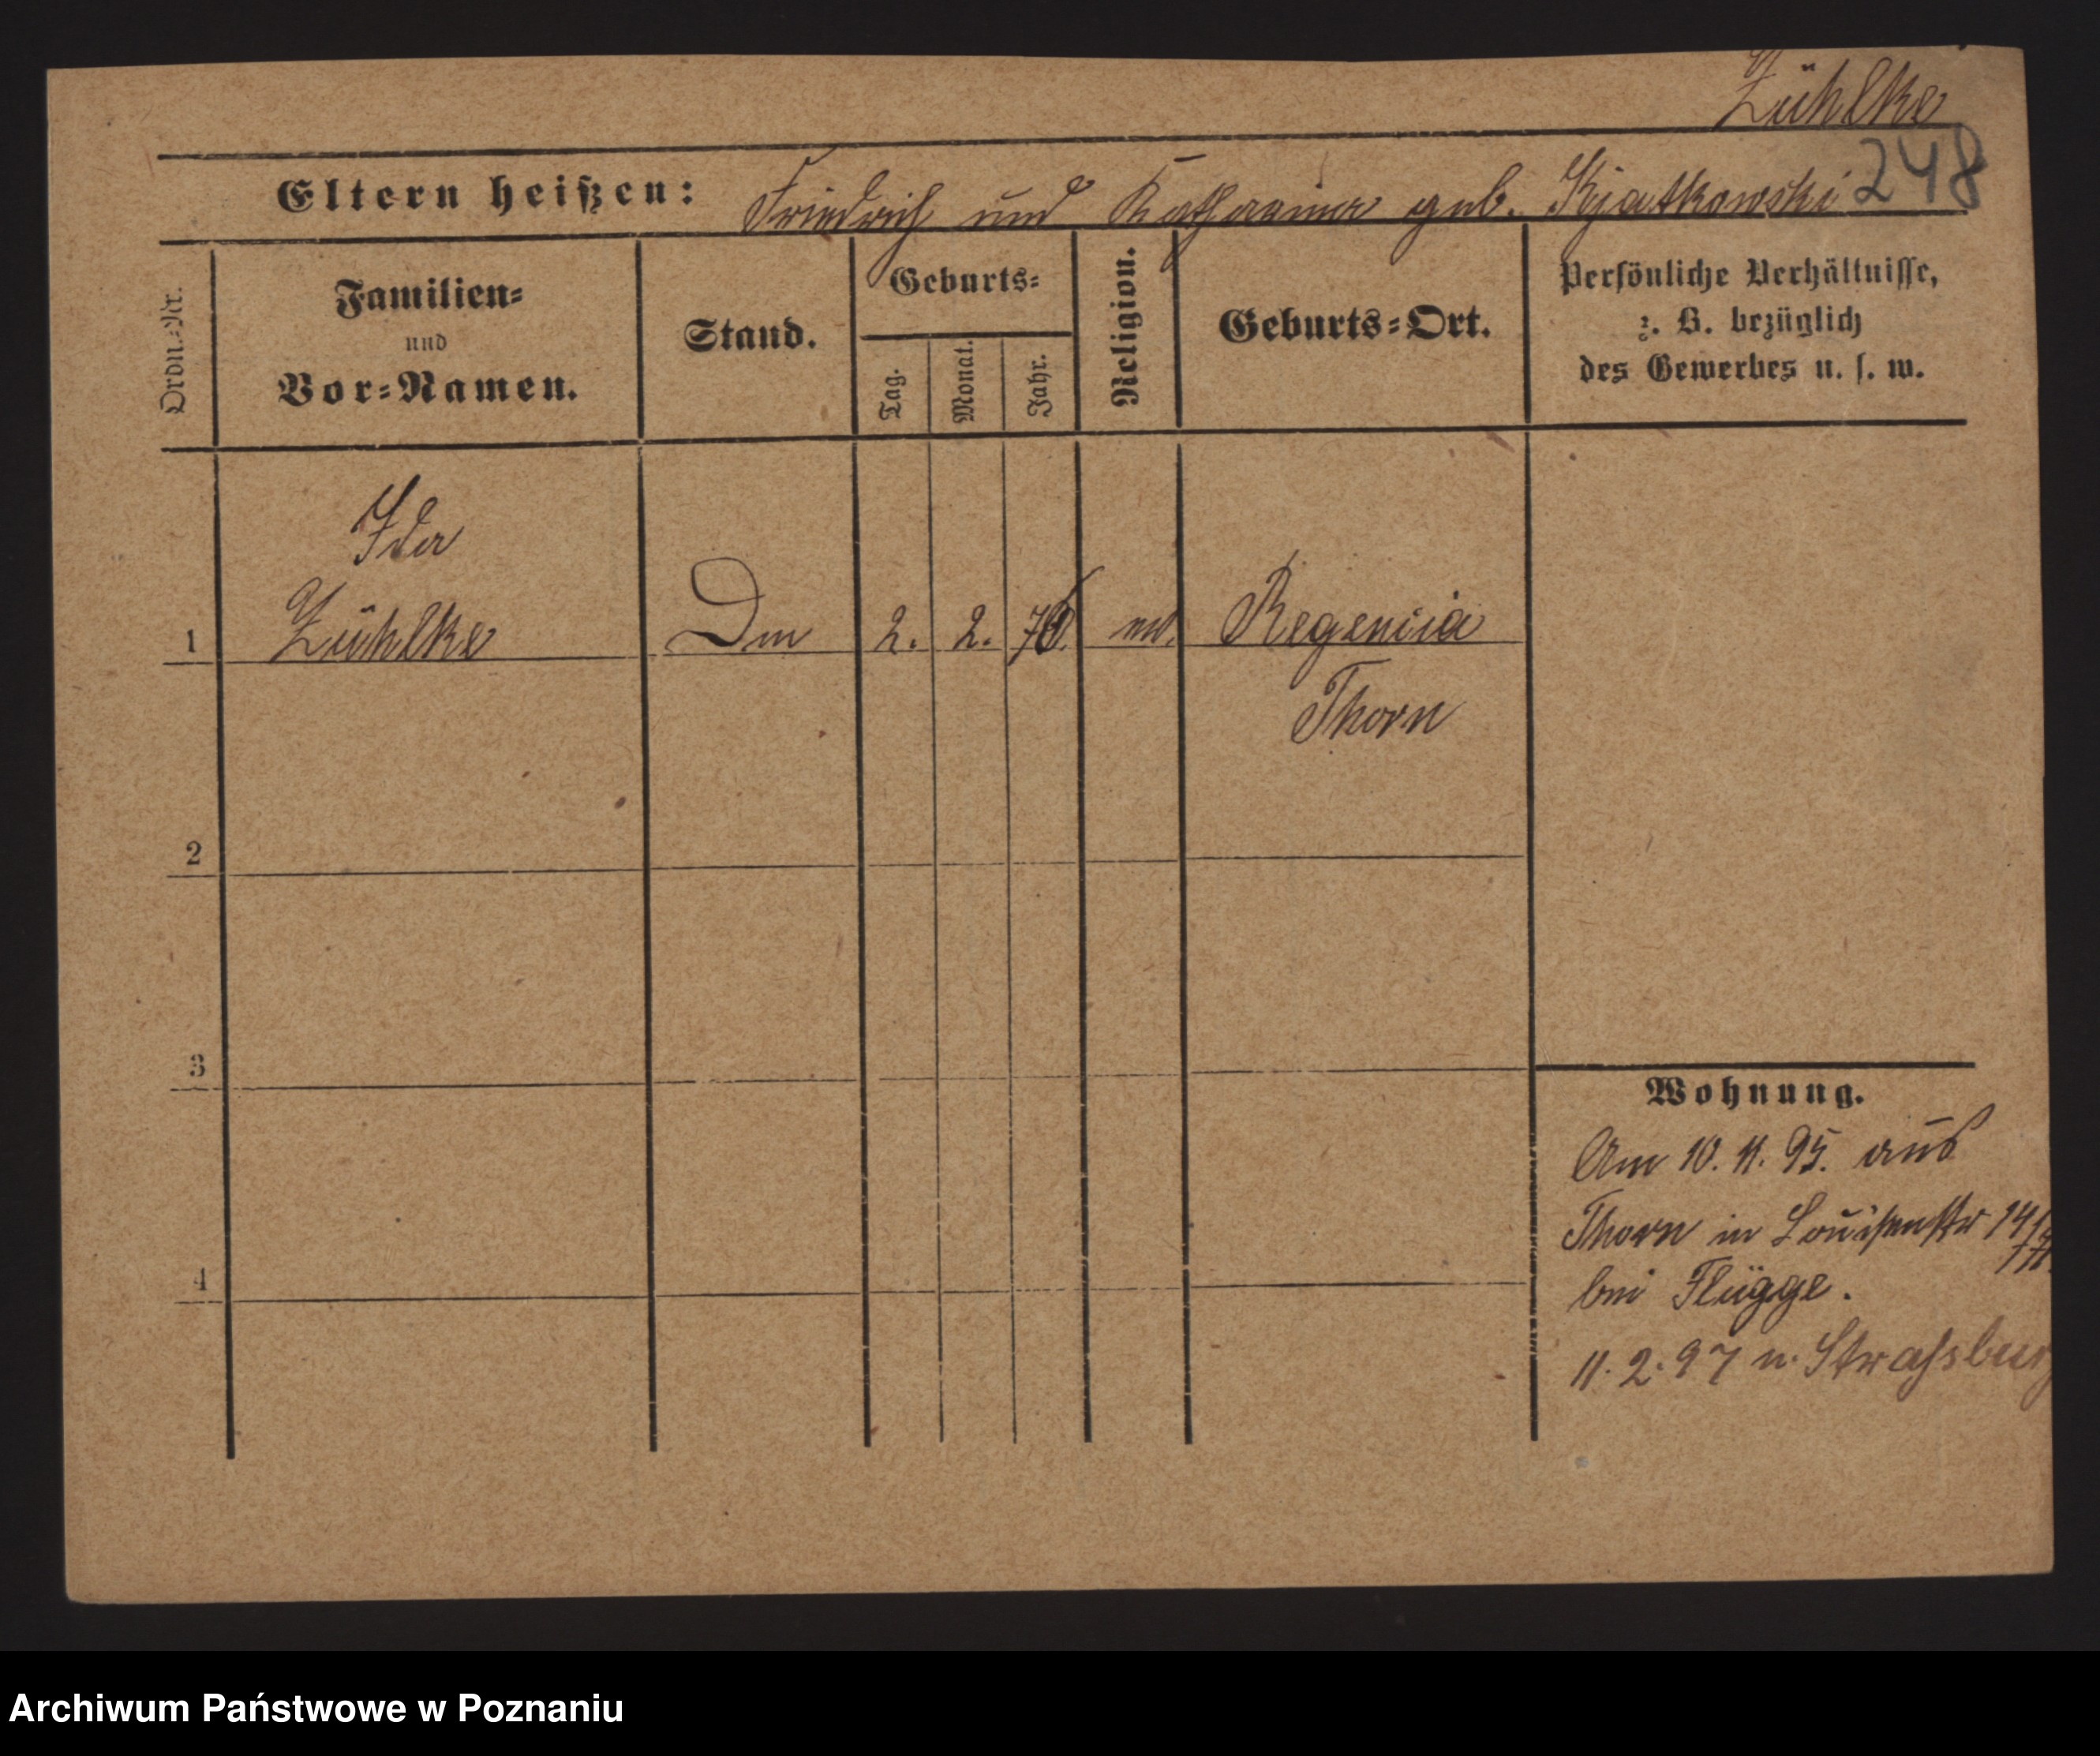 Zühlke
248
Eltern heißen: Friedrich und Katharina geb. Kjatkowski
Ordn.=Nr.
Familien=
und
Vor=Namen.
Stand.
Geburts=
Tag.
Monat.
Jahr.
Religion.
Geburts=Ort.
Persönliche Verhältnisse,
z. B. bezüglich
des Gewerbes u. s. w.
Ida
1 Zühlke 2. 2. Regencia
Thorn
2
3
4
Wohnung.
Am 10. 11. 95. aus
Thorn in Louisenstr 14
bei Flügge.
11. 2. 97 n. Strassburg